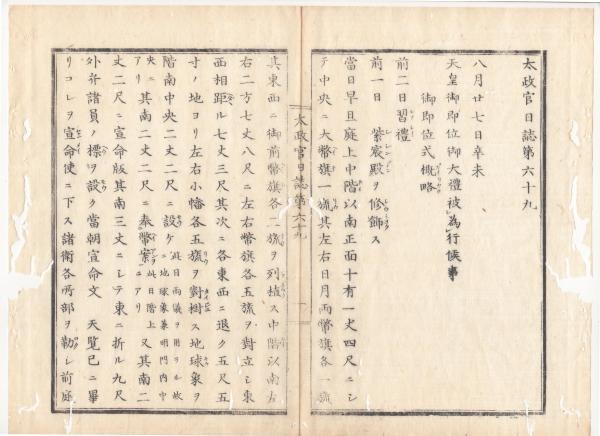 太政官日誌第六十九
八月廿七日辛未
天皇御即位御大禮被為行候事
御即位式概略
前二日習禮
前一日紫宸殿ヲ修飾ス
當日早旦庭上中階以南正面十有一丈四尺ニシ
テ中央ニ大幣旗一旒其左右日月兩幣旗各一旒
太政官日誌第六十九
其東西ニ御前幣旗各二旒ヲ列植ス中階以南左
右二方七丈八尺ニ左右幣旗各五旒ヲ對立シ東
西相距ル七丈三尺其次ニ各東西ニ退ク五尺五
寸ノ地ヨリ左右小幡各五旒ヲ對樹ス地球象ヲ
階南中央二丈二尺ニ設ケ此日雨儀ヲ用ウル故ニ地球象兼明門内中
央ニアリ其南二丈二尺ニ奉幣案此日階上ニアリ又其南二
丈二尺ニ宣命版其南三丈ニシテ東ニ折ル九尺
外弁諸員ノ標ヲ設ク當朝宣命文天覽已ニ畢
リコレヲ宣命使ニ下ス諸衛各所部ヲ勒シ前庭